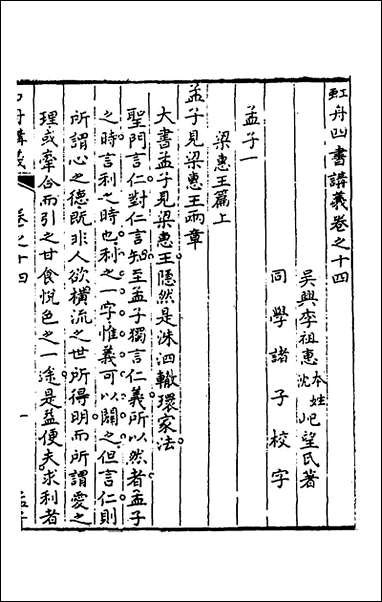 虹舟四書講義卷之十四
吳興李祖惠本姓沈屺望氏著
同學諸子校字
孟子一
梁惠王篇上
孟子見梁惠王兩章
大書孟子見梁惠王隱然是洙泗轍環家法
聖門言仁對仁言知至孟子獨言仁義所以然者孟子
之時言利之時也利之一字惟義可以關之但言仁則
所謂心之德既非人欲橫流之世所得明而所謂愛之
理或牽合而引之甘食悅色之一途是益便夫求利者
卷之十四
一